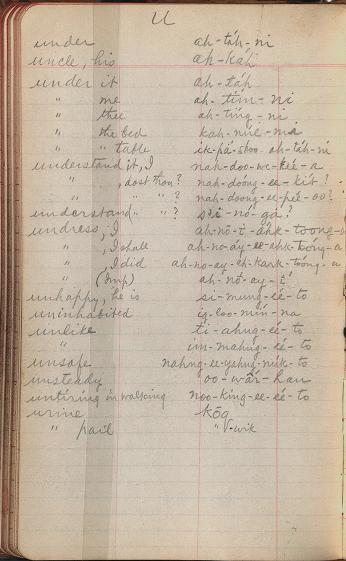 U
under ah-táh-ni
uncle, his ah-káh
under it ah-táh
" me ah-tím-ni
" thee ah-tíng-ni
" the bed kah-núl-má
" " table ik-pá-shoo ah-táh-ni
understand it, I nah-doo-we-kéé-a
" , dost thou? nah-doóng-ee-kít?
" " " ? nah-doong-ee-peé-oo?
understand " " ? -nó-gá?
undress, I ah-nō-ĭ-áhk-toong-a
" , I shall ah-no-áy-ee-ahk-toóng-a
" , I did ah-no-ay-ch-kark-toóng-a
" (Imp) ah-nó-ay-ĭ
unhappy, he is si-mung-éé-to
uninhabited ig-loo-mín-na
unlike ti-ahng-éé-to
" im-mahng-éé-to
unsafe nahng-ee-yahng-núk-to
unsteady oo-wár-han
untiring in walking noo-king-ee-éé-to
urine kōg
" pail " V-wik